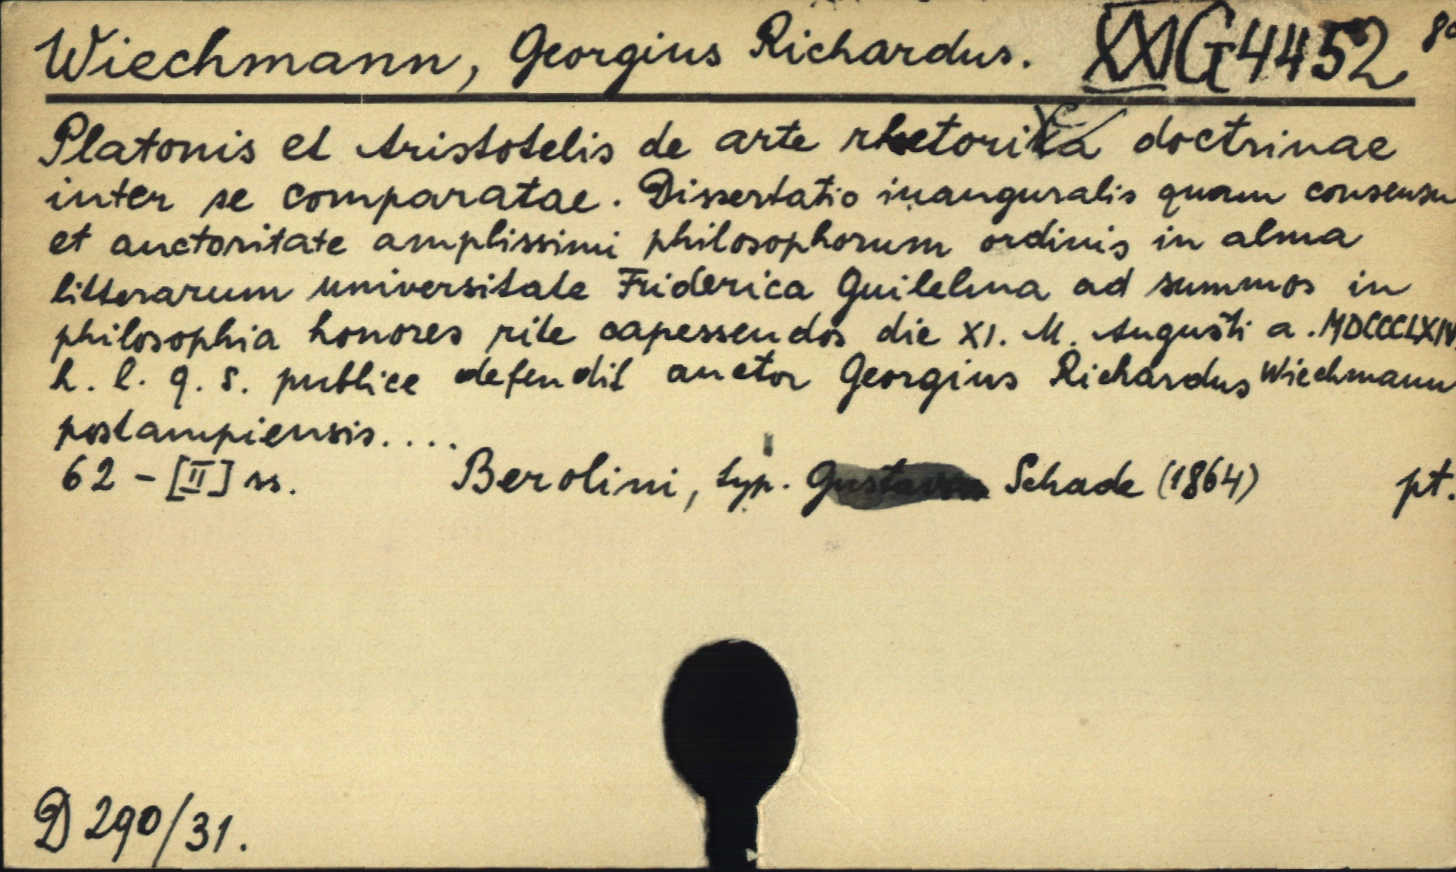 Wiechmann, Georgius Richardus. XXI G 4452 80
Platonis et Aristotelis de arte rhetorica doctrinae
inter se comparatae. Dissertatio inauguralis quam consensu
et auctoritate amplissimi philosophorum ordinis in alma
litterarum universitate Friderica Guilelma ad summos in
philosophia honores rite capessendos die XI. M. Augusti a. MDCCCLXIV
h. l. q. s. publice defendit auctor Georgius Richardus Wiechmann
postampiensis....
62 - [II] ss. Berolini, typ. Gustavus Schade (1864) pt.
D 290/31.